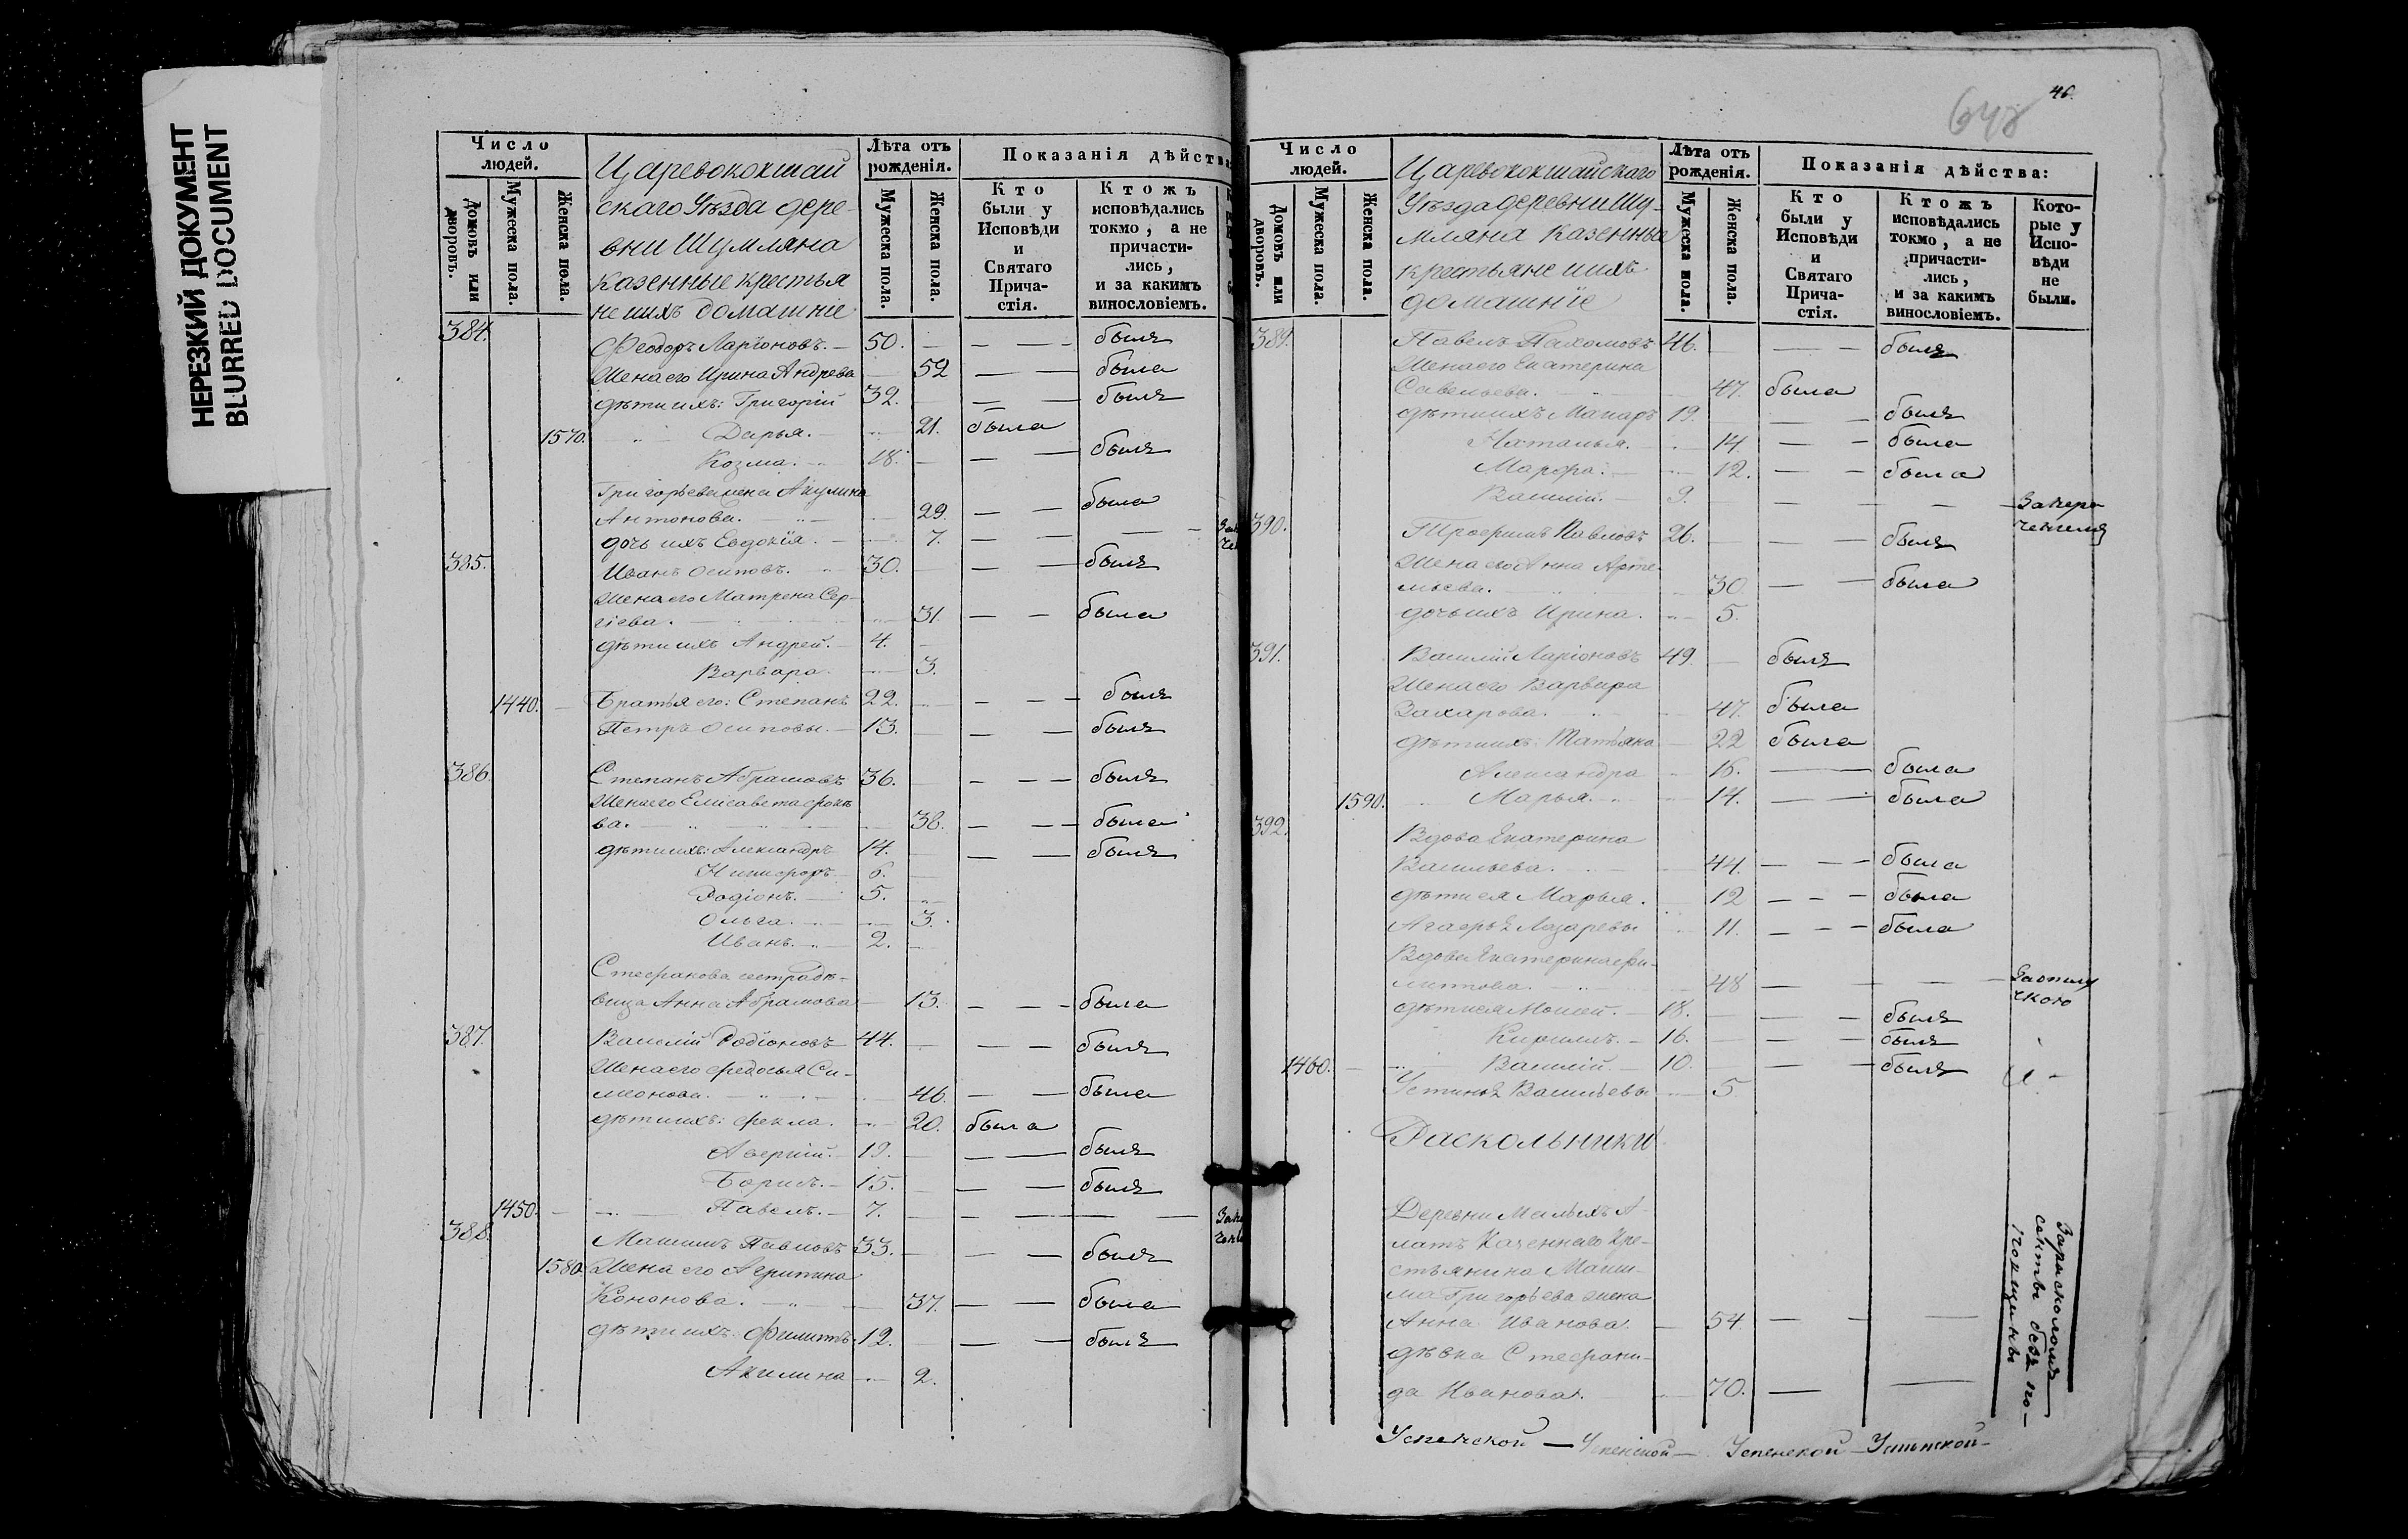 НЕРЕЗКИЙ ДОКУМЕНТ
BLURRED DOCUMENT
Число людей.
домовъ или дворовъ.
Мужеска пола.
Женска пола.
Царевококшай
скаго Уѣзда дере-
вни Шумляна
казенные крестья
не ихъ домашніе
Лѣта отъ рожденія.
Мужеска пола.
Женска пола.
Показанія дѣйств
Кто были у Исповѣди и Святаго Прича-стія.
Ктожъ исповѣдались токмо, а не причасти-лись, и за какимъ винословіемъ.
384.
Феодоръ Ларіоновъ. — 50. — — — былъ
Жена его Ирина Андрева 52 — — была
дѣти ихъ: Григорій 32. — — былъ
1570. Дарья. — 21. была
Козма. 18. — — — былъ
Григорьева жена Акулина
Антонова. 29. — — была
дочь ихъ Евдокія. — 7. — — — —
385. Иванъ Осиповъ. 30. — — — былъ
Жена его Матрена Сер-
гіева. 31. — — была
дѣти ихъ Андрей. — 4. —
Варвара. 3.
1440. — Братья его: Степанъ 22. — — — былъ
Петръ Осиповы. — 13. — — — былъ
386. Степанъ Абрамовъ 36. — — — былъ
Жена его Елисавета
ва. 38. — — — была
дѣти ихъ: Александръ 14. — — — былъ
Никифоръ — 6. —
Родіонъ. — 5.
Ольга. 3.
Иванъ. 2.
Стефанова сестра дѣ-
вица Анна Абрамова — 13. — — — была
387. Василій Родіоновъ 44. — — — — былъ
Жена его Федосья Си-
меонова. 46. — — была
дѣти ихъ: Фекла. 20. была
Аверкій. — 19. — — — былъ
Борисъ. — 15. — — — былъ
1450. Павелъ. — 7. — — — — —
388. Максимъ Павловъ 33. — — — былъ
1580. Жена его Агрипина
Кононова. 37. — — была
дѣти ихъ: Филипъ. 12. — — — былъ
Акилина 2.
46.
648
Число людей.
Домовъ или дворовъ.
Мужеска пола.
Женска пола.
Царевококшайскаго
Уѣзда деревни Шу-
мляна казенные
крестьяне ихъ
домашніе
Лѣта отъ рожденія.
Мужеска пола.
Женска пола.
Показанія дѣйства:
Кто были у Исповѣди и Святаго Прича-стія.
Ктожъ исповѣдались токмо, а не причасти-лись, и за какимъ винословіемъ.
Кото-рые у Испо-вѣди не были.
389. Павелъ Пахомовъ 46. — — — былъ
Жена его Екатерина
Савельева. 47. была
дѣти ихъ Макаръ 19. — — былъ
Наталья. 14. — — была
Марфа. 12. — — была
Василій. — 9. — — — —
390. Трофимъ Павловъ 26. — — — былъ
Жена его Анна Арте-
мьева. 30. — — была
дочь ихъ Ирина. 5.
391. Василій Ларіоновъ 49. — былъ
Жена его Варвара
Захарова. 47. была
дѣти ихъ: Татьяна 22 была
Александра 16. — — была
1590. Марья. 14. — — была
392. Вдова Екатерина
Васильева. 44. — — — была
дѣти ея Марья. 12 — — — была
Агафья Лазаревы 11. — — — была
Вдова Екатерина
48 — — — —
дѣти ея Моисей. — 18. — — — былъ
Кирилъ. — 16. — — — былъ
1460. Василій. — 10. — — былъ
Устинья Васильевы 5
Раскольники
Деревни Малыхъ А-
латъ Казеннаго Кре-
стьянина Макси-
ма Григорьева жена
Анна Иванова. 54 — — —
дѣвка Стефани-
да Иванова. 70. — —
За расколомъ
секты безъ по-
повщины
Успенской — Успенской — Успенской — Успенской —